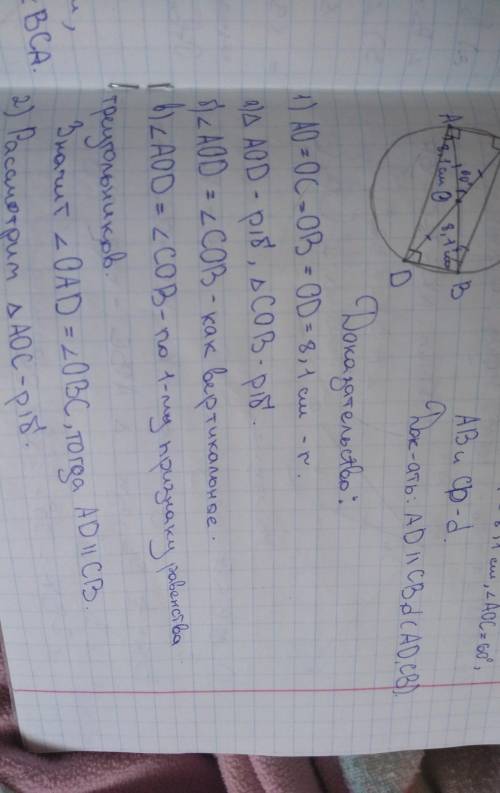 ∠BCA.
8,1 см, ∠AOC = 60°,
AB и CD - d.
Док-ать: AD ∥ CB, d(AD, CB).
A
8,1 см
60°
O
8,1 см
B
D
Доказательство:
1) AO = OC = OB = OD = 8,1 см - r.
а) △ AOD - р/б, △ COB - р/б.
б) ∠AOD = ∠COB - как вертикальное.
в) ∠AOD = ∠COB - по 1-му признаку равенства
треугольников.
Значит ∠OAD = ∠OBC, тогда AD ∥ CB.
2) Рассмотрим △ AOC - р/б.